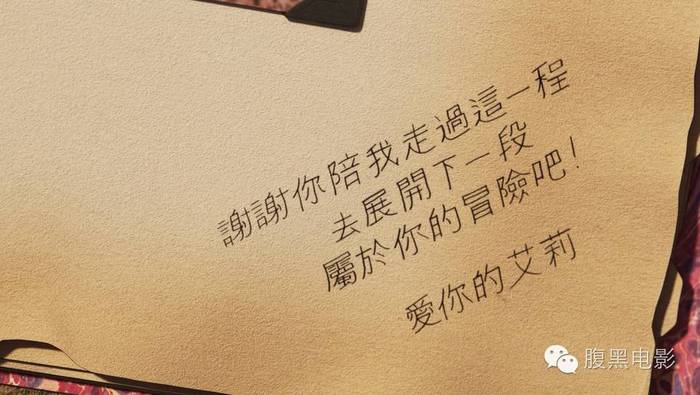 謝謝你陪我走過這一程
去展開下一段
屬於你的冒險吧！
愛你的艾莉
腹黑电影